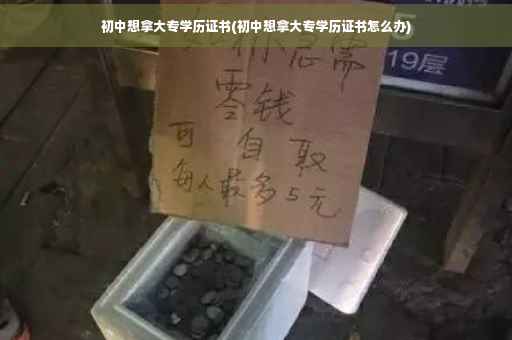 初中想拿大专学历证书(初中想拿大专学历证书怎么办)
你急需
零钱
可自取
每人最多5元
19层